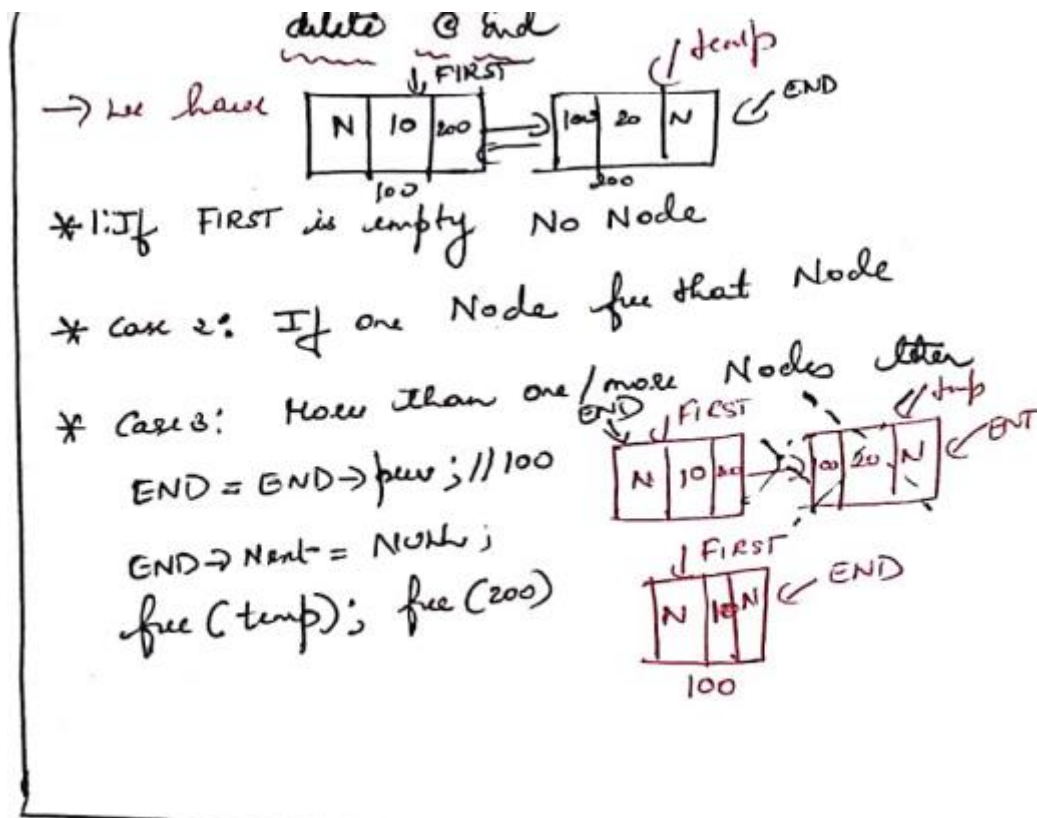 delete @ End
FIRST
temp
END
→ we have
N 10 200
100 20 N
100
200
* 1: If FIRST is empty No Node
* Case 2: If one Node free that Node
* Case 3: More than one/more Nodes
END
FIRST
temp
END = END→prev; //100
N 10 20
100 20 N
END→Next = NULL;
FIRST
END
free(temp); free(200)
N 10 N
100